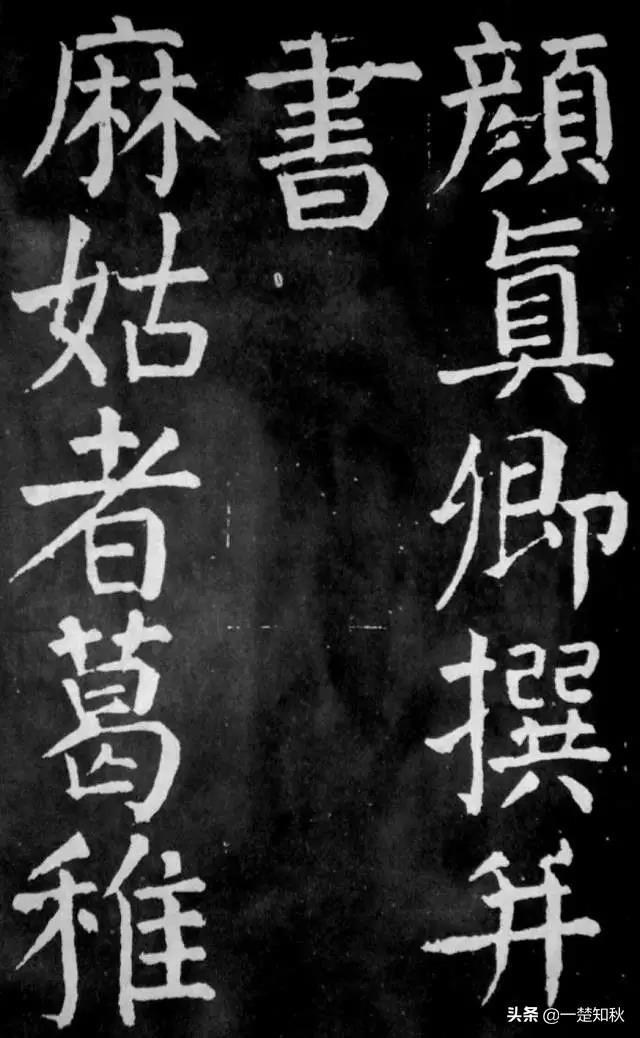 顔真卿撰并
書
麻姑者葛稚
头条 @一楚知秋